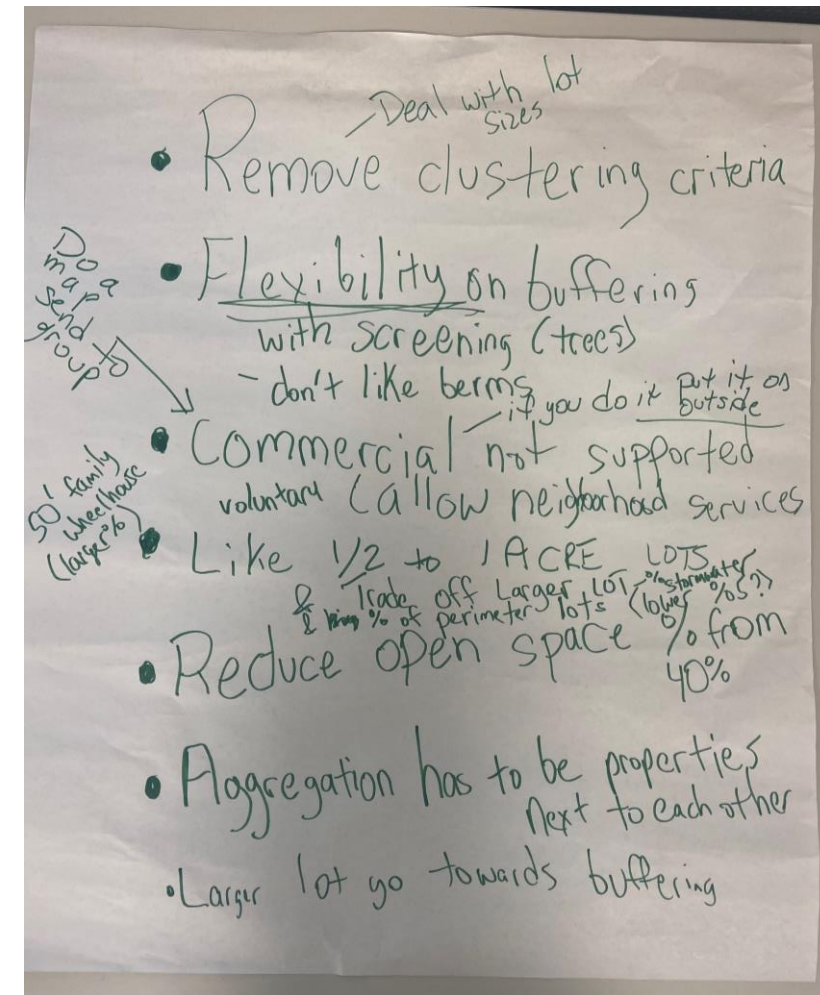 Deal with lot
sizes
• Remove clustering criteria
• Flexibility on buffering
with screening (trees)
- don't like berms
- if you do it put it on
outside
Do
map
send to
group
• Commercial not supported
voluntary (allow neighborhood services
50' family
wheelhouse
(larger %
• Like 1/2 to 1 ACRE LOTS
& Trade off Larger LOT - % stormwater
& % of perimeter lots (lower %s??)
• Reduce open space % from
40%
• Aggregation has to be properties
next to each other
• Larger lot go towards buffering